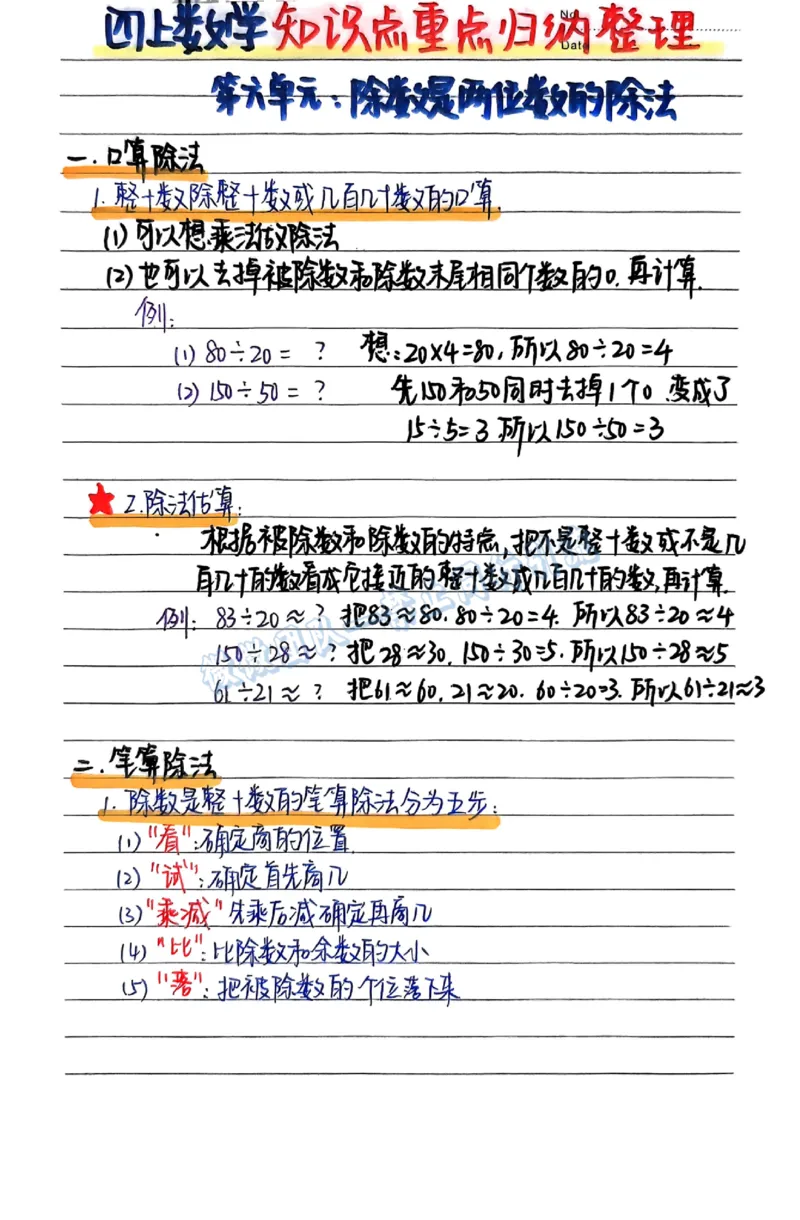 四上数学知识点重点归纳整理
No.
Date
第六单元:除数是两位数的除法
一.口算除法
1.整十数除整十数或几百几十数的口算.
(1)可以想乘法做除法
(2)也可以去掉被除数和除数末尾相同个数的0.再计算.
例:
(1)80÷20= ? 想:20×4=80,所以80÷20=4
(2)150÷50= ? 先150和50同时去掉1个0.变成了
15÷5=3.所以150÷50=3
★2.除法估算:
根据被除数和除数的特点,把不是整十数或不是几
百几十的数看成它接近的整十数或几百几十的数,再计算.
例: 83÷20≈? 把83≈80.80÷20=4.所以83÷20≈4
150÷28≈? 把28≈30,150÷30=5.所以150÷28≈5
61÷21≈? 把61≈60,21≈20.60÷20=3.所以61÷21≈3
二.笔算除法
1.除数是整十数的笔算除法分为五步:
(1)"看":确定商的位置.
(2)"试":确定首先商几
(3)"乘减"先乘后减确定再商几
(4)"比":比除数和余数的大小
(5)"落":把被除数的个位落下来